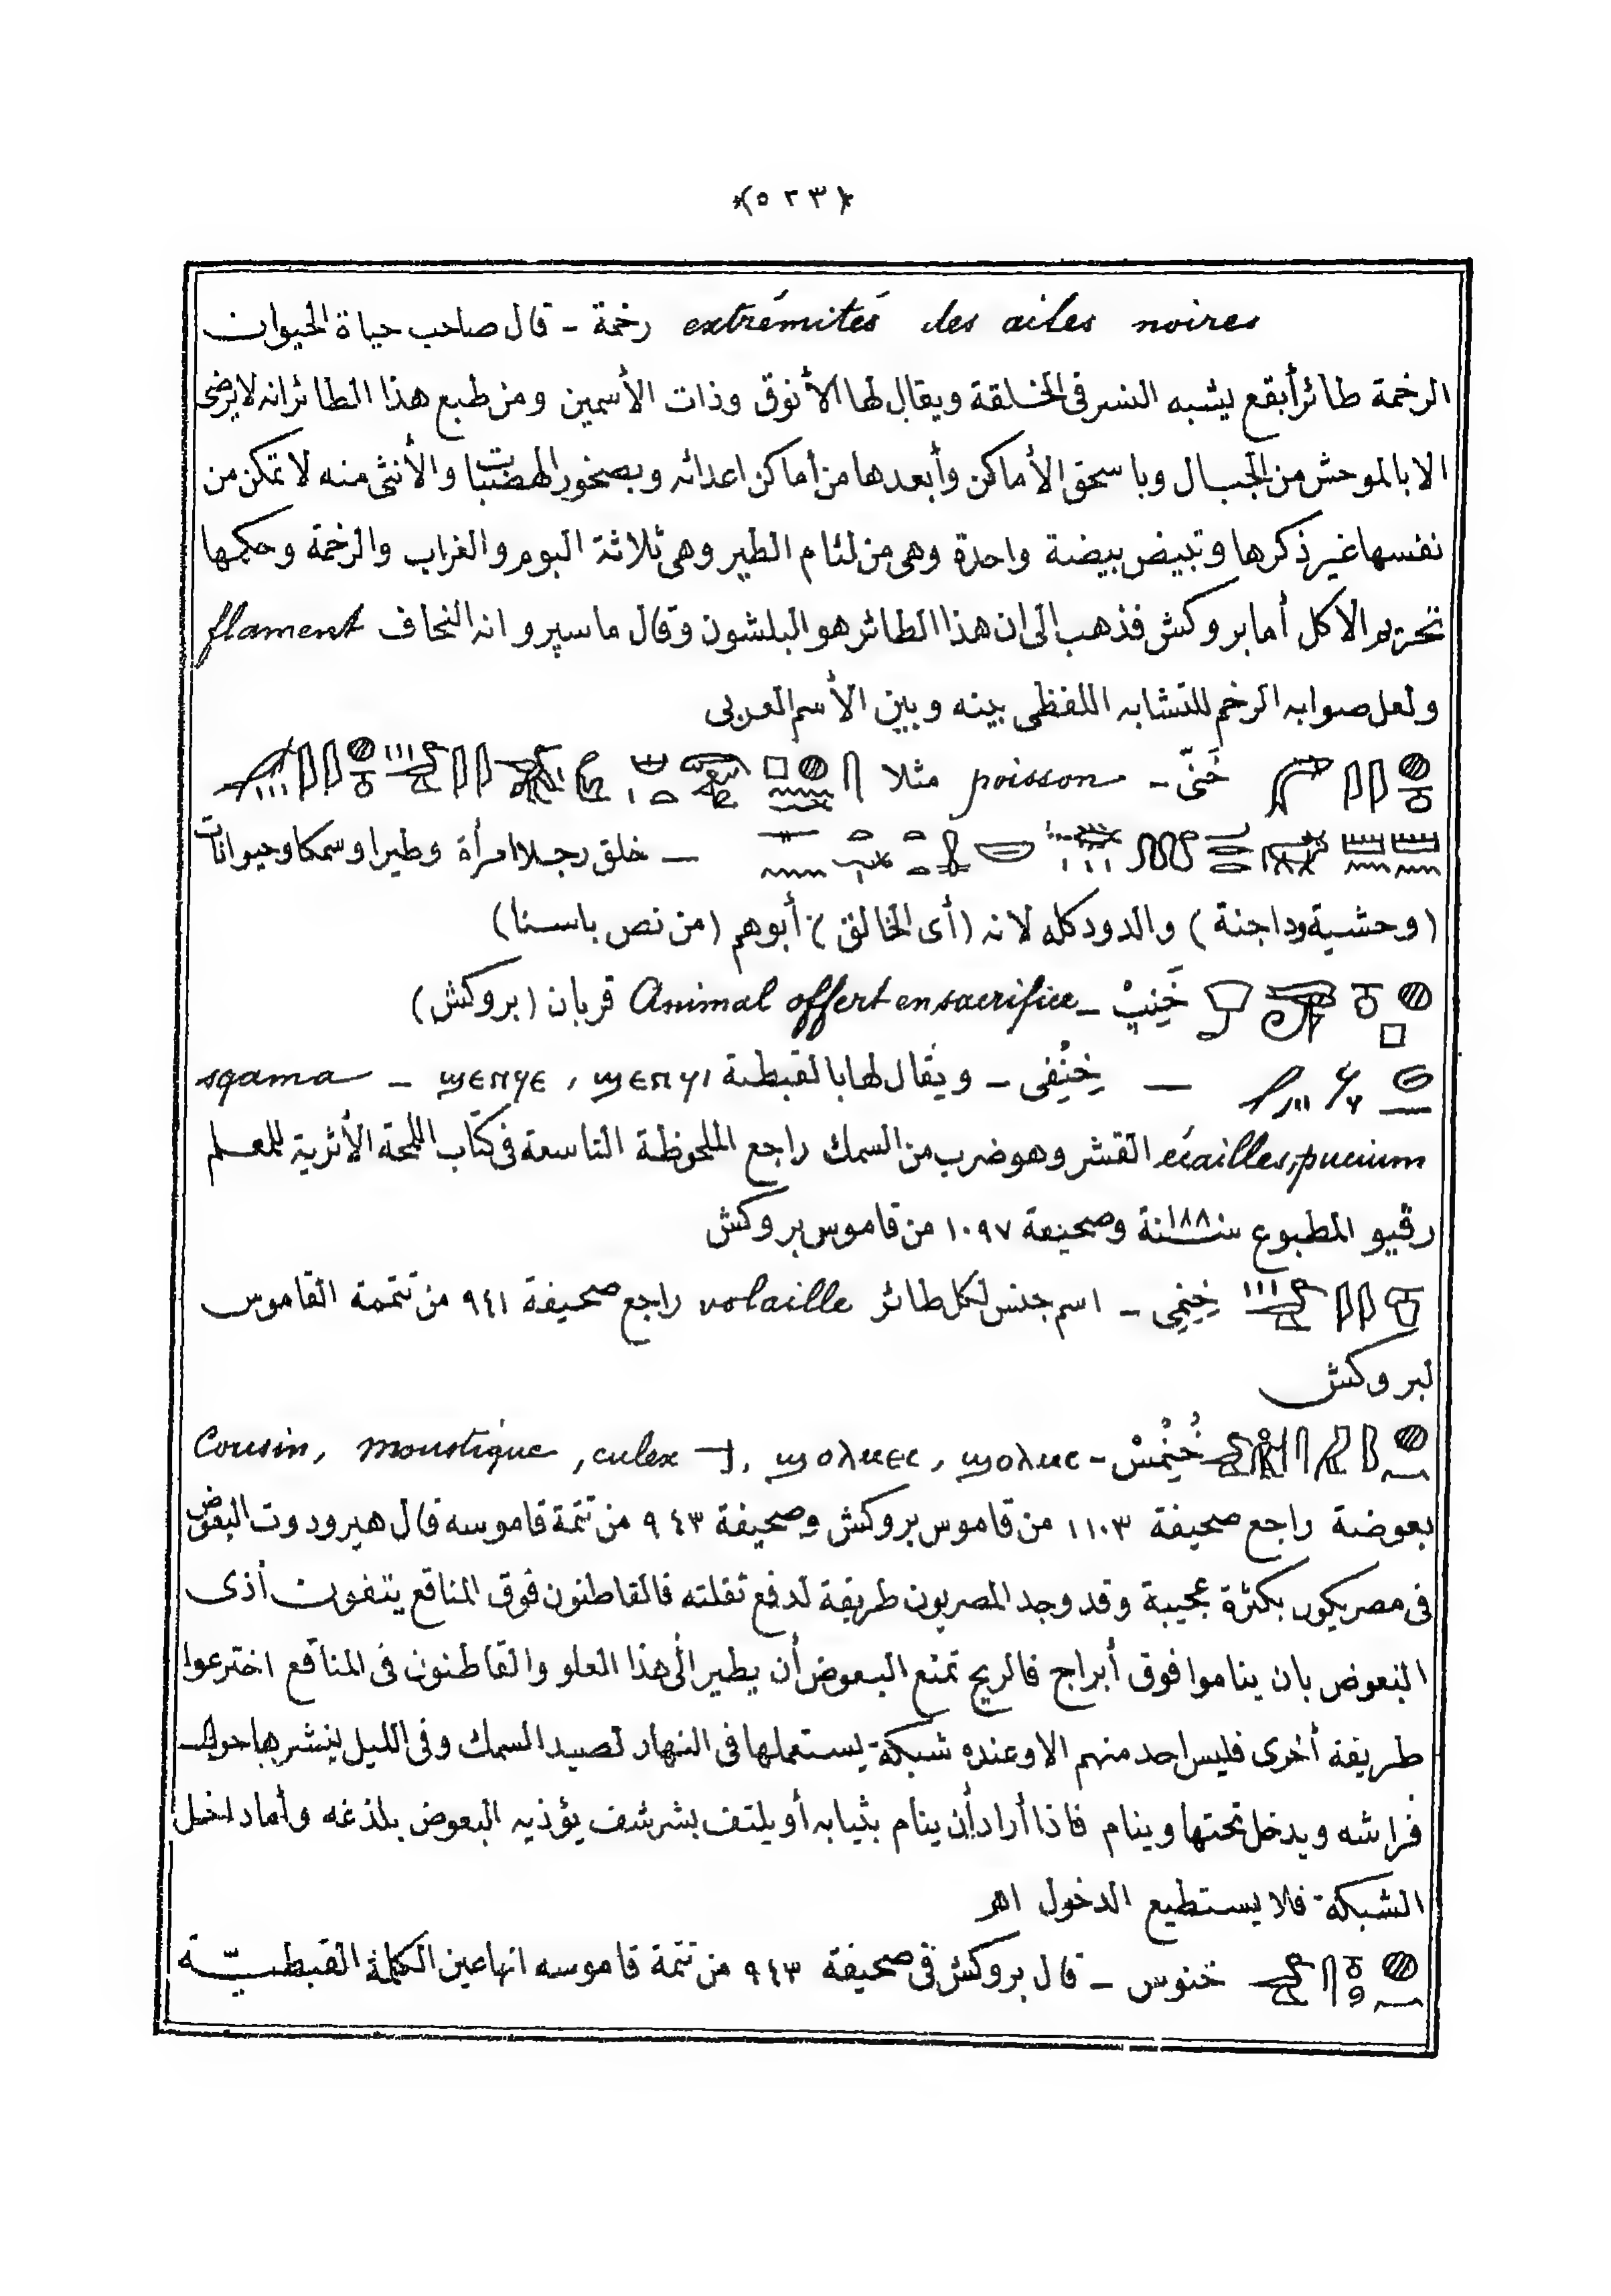 ﴿٥٢٣﴾
extrémités des ailes noires رخمة - قال صاحب حياة الحيوان
الرخمة طائر أبقع يشبه النسر فى الخلقة ويقال لها الأنوق وذات الأسمين ومن طبع هذا الطائر انه لا يرضى
الا بالموحش من الجبال وباسحق الأماكن وأبعدها من أماكن اعدائه وبصخور الهضبات والأنثى منه لا تمكن من
نفسها غير ذكرها وتبيض بيضة واحدة وهى من لئام الطير وهى ثلاثة البوم والغراب والرخمة وحكمها
تحريم الاكل أما بروكش فذهب الى ان هذا الطائر هو البلشون وقال ماسپرو انه النحاف flament
ولعل صوابه الرخم للتشابه اللفظى بينه وبين الأسم العربى
خَنّى - poisson مثلا
— خلق رجلا امرأة وطيرا وسمكا وحيوانات
(وحشية وداجنة) والدود كله لانه (أى الخالق) أبوهم (من نص باسنا)
خَنِبْ - Animal offert en sacrifice قربان (بروكش)
— خِنِفى - ويقال لها بالقبطية ϣⲉⲛϥⲓ , ϣⲉⲛϥⲉ - sqama
écailles, pucium القشر وهو ضرب من السمك راجع الملحوظة التاسعة فى كتاب اللمحة الأثرية للمعلم
رقيو المطبوع سنة ١٨٨ وصحيفة ١٠٩٧ من قاموس بروكش
خِنِمِى - اسم جنس لكل طائر volaille راجع صحيفة ٩٤١ من تتمة القاموس
لبروكش
خُنِمْسْ - ϣⲟⲗⲙⲥ , ϣⲟⲗⲙⲉⲥ , ϯ culex, Cousin, moustique
بعوضة راجع صحيفة ١١٠٣ من قاموس بروكش وصحيفة ٩٤٣ من تتمة قاموسه قال هيرودوت البعوض
فى مصر يكون بكثرة عجيبة وقد وجد المصريون طريقة لدفع ثقلته فالقاطنون فوق المناقع يتقون أذى
البعوض بان يناموا فوق أبراج فالريح تمنع البعوض أن يطير الى هذا العلو والقاطنون فى المناقع اخترعوا
طريقة أخرى فليس احد منهم الا وعنده شبكة يستعملها فى النهار لصيد السمك وفى الليل ينشرها حول
فراشه ويدخل تحتها وينام فاذا أراد أن ينام بثيابه أو يلتف بشرشف يؤذيه البعوض بلذغه وأما داخل
الشبكة فلا يستطيع الدخول اهـ
خنوس - قال بروكش فى صحيفة ٩٤٣ من تتمة قاموسه انها عين الكلمة القبطية